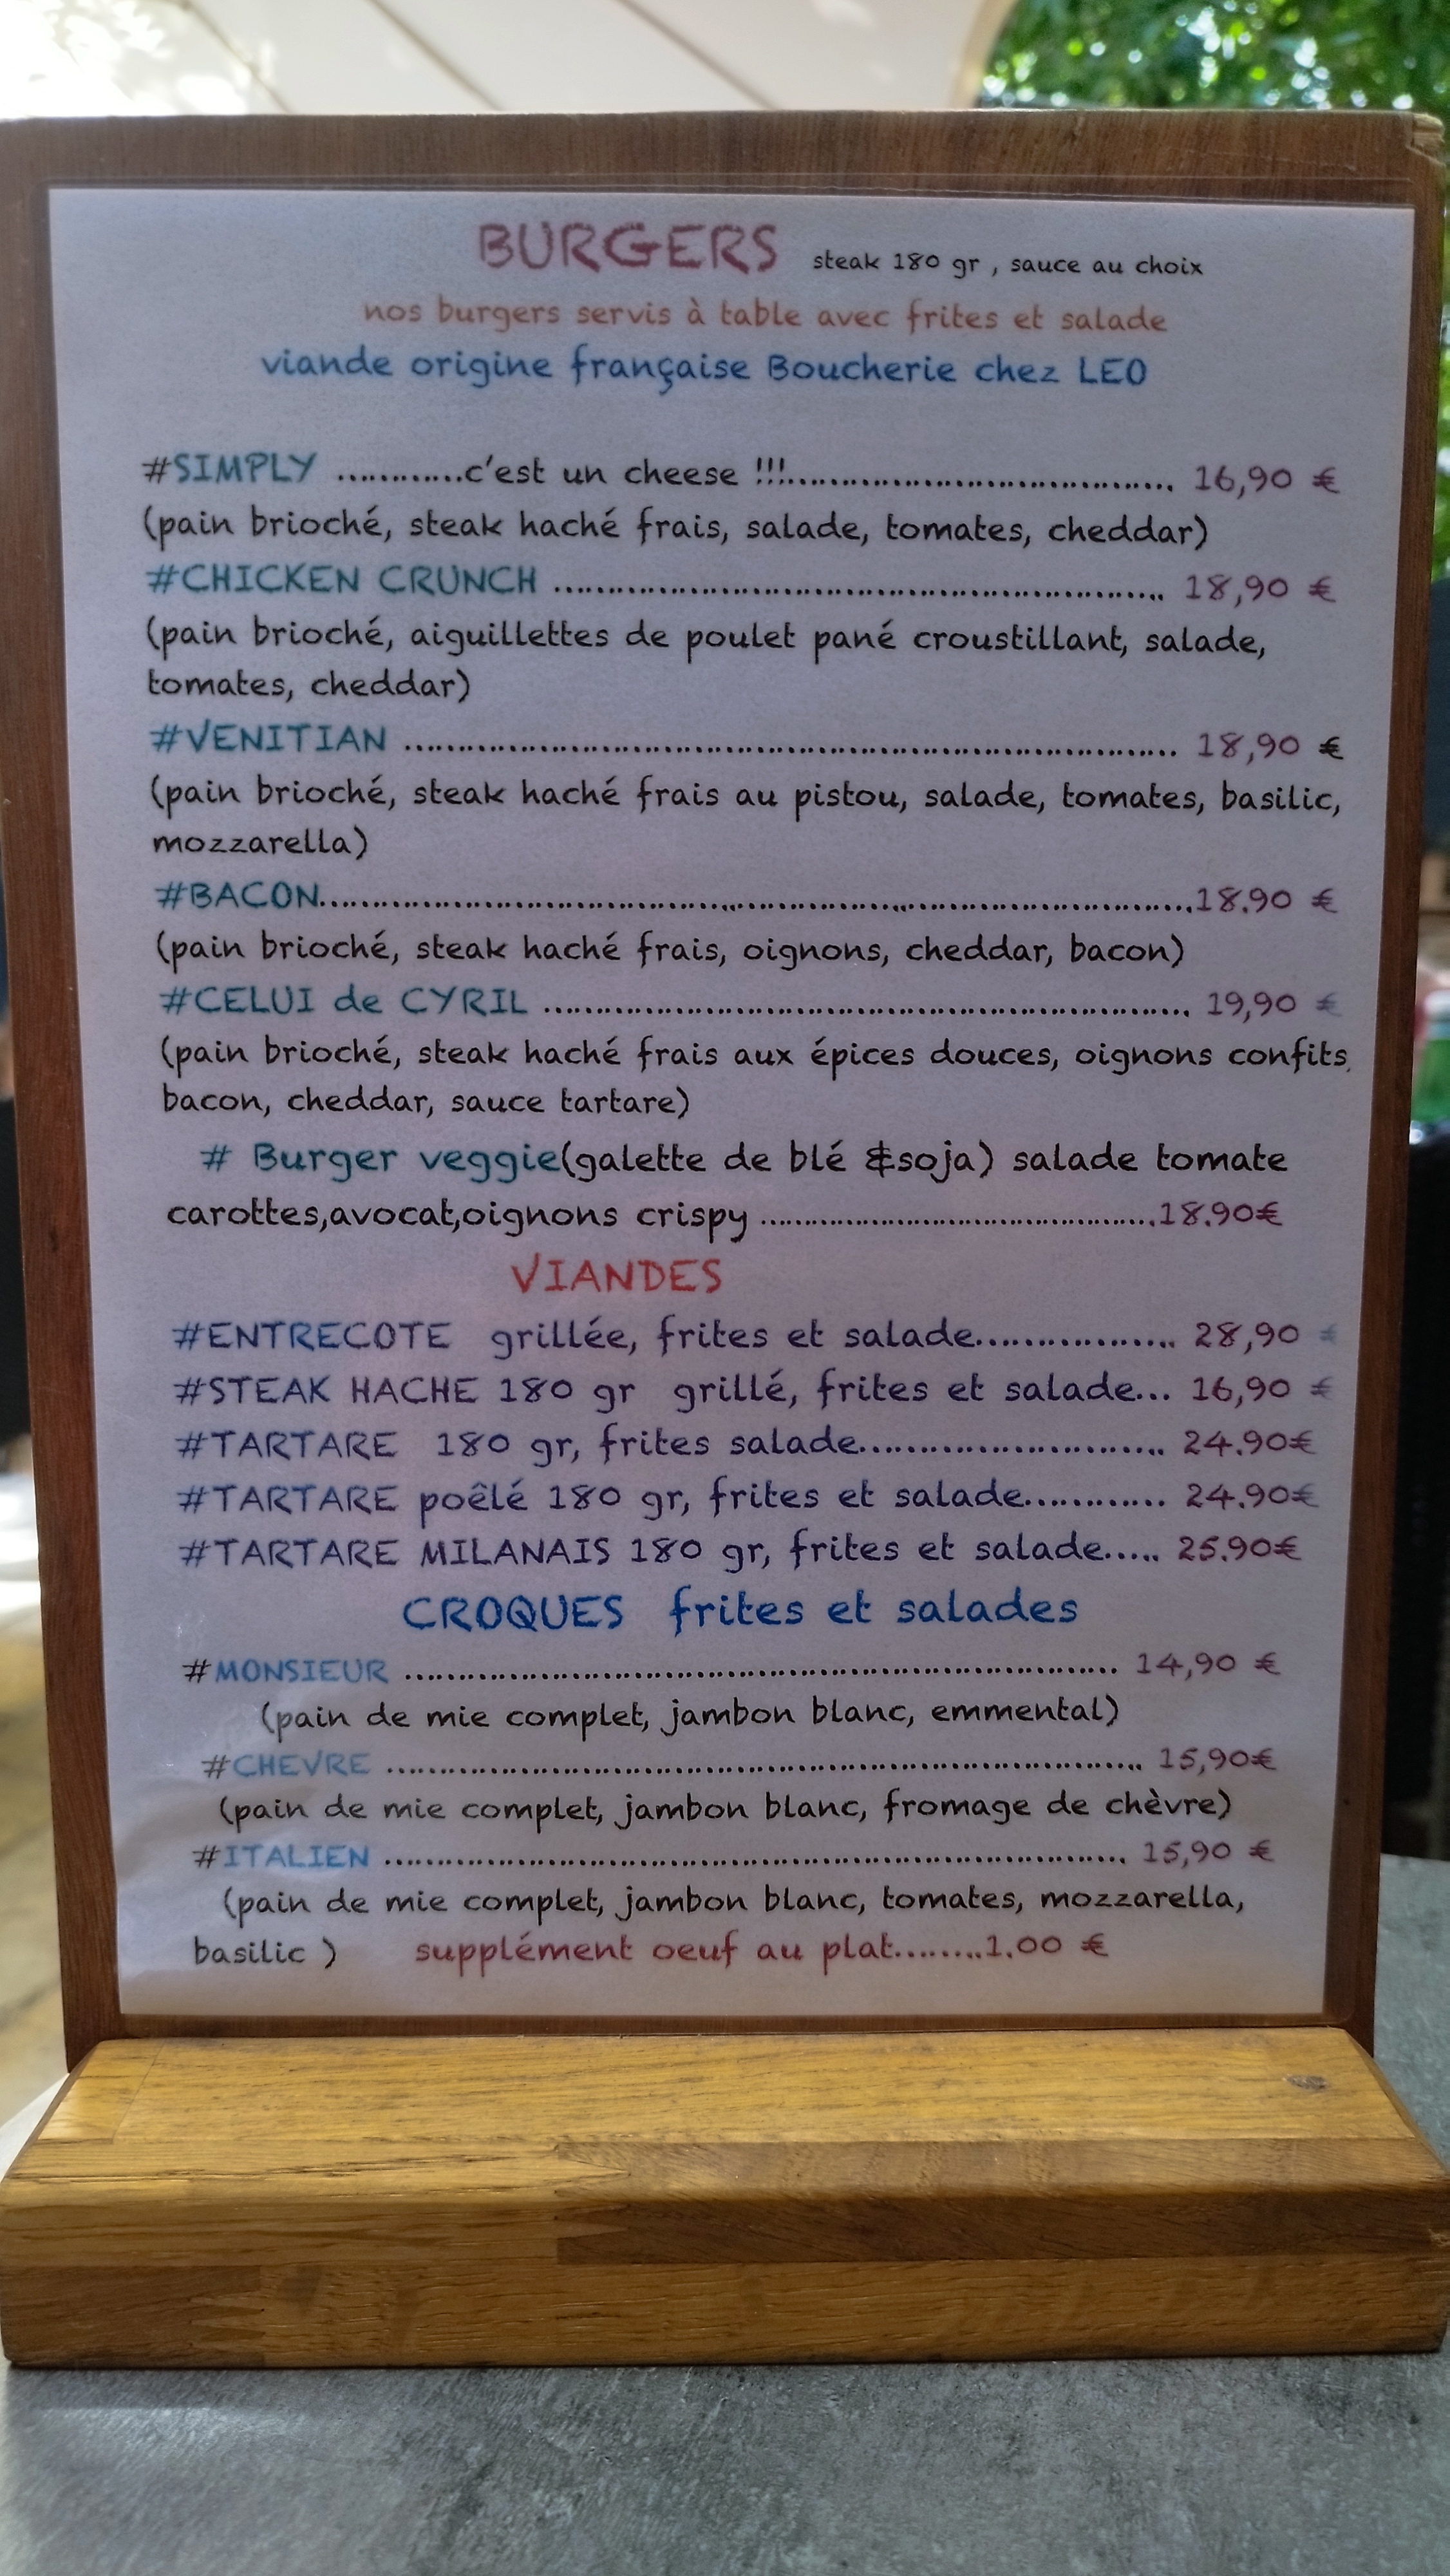 BURGERS steak 180 gr , sauce au choix
nos burgers servis à table avec frites et salade
viande origine française Boucherie chez LEO
#SIMPLY ............c'est un cheese !!!..................................... 16,90 €
(pain brioché, steak haché frais, salade, tomates, cheddar)
#CHICKEN CRUNCH .......................................................... 18,90 €
(pain brioché, aiguillettes de poulet pané croustillant, salade,
tomates, cheddar)
#VENITIAN .......................................................................... 18,90 €
(pain brioché, steak haché frais au pistou, salade, tomates, basilic,
mozzarella)
#BACON...................................................................................18.90 €
(pain brioché, steak haché frais, oignons, cheddar, bacon)
#CELUI de CYRIL .............................................................. 19,90 €
(pain brioché, steak haché frais aux épices douces, oignons confits,
bacon, cheddar, sauce tartare)
# Burger veggie(galette de blé &soja) salade tomate
carottes,avocat,oignons crispy ..........................................18.90€
VIANDES
#ENTRECOTE grillée, frites et salade................... 28,90 €
#STEAK HACHE 180 gr grillé, frites et salade... 16,90 €
#TARTARE 180 gr, frites salade............................. 24.90€
#TARTARE poêlé 180 gr, frites et salade............. 24.90€
#TARTARE MILANAIS 180 gr, frites et salade..... 25.90€
CROQUES frites et salades
#MONSIEUR .................................................................... 14,90 €
(pain de mie complet, jambon blanc, emmental)
#CHEVRE ........................................................................ 15,90€
(pain de mie complet, jambon blanc, fromage de chèvre)
#ITALIEN ...................................................................... 15,90 €
(pain de mie complet, jambon blanc, tomates, mozzarella,
basilic ) supplément oeuf au plat........1.00 €